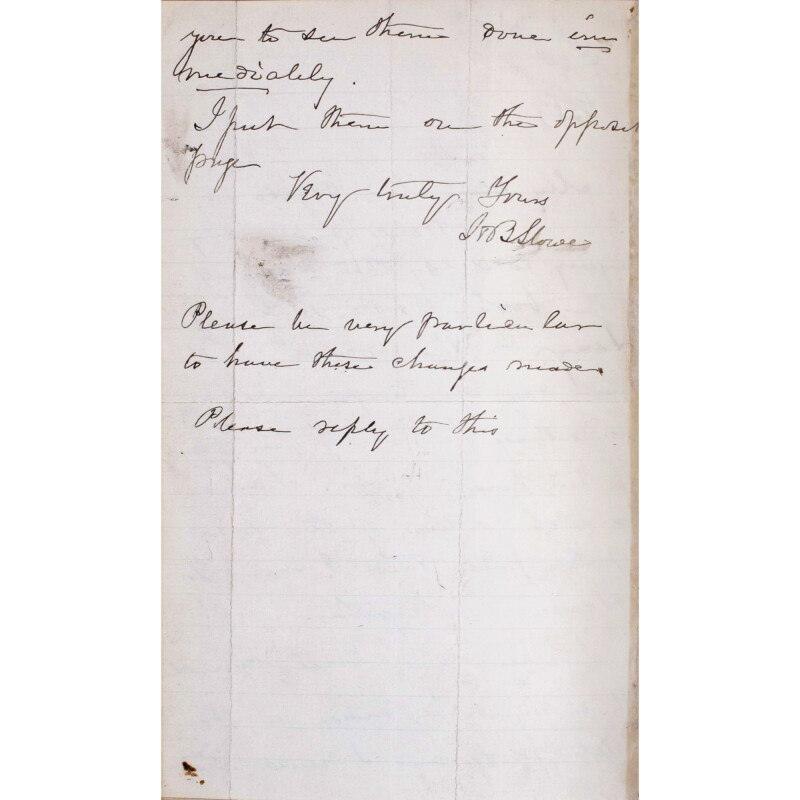 you to see them done im
mediately.
I put them on the opposit
page
Very truly Yours
H B Stowe
Please be very particular
to have these changes made
Please reply to this